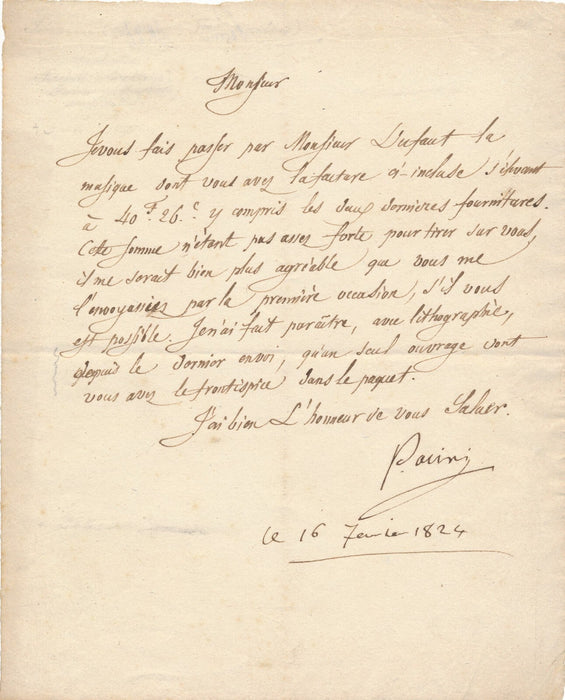 Monsieur
Je vous fais passer par Monsieur Dufaut la
musique dont vous avez la facture ci-incluse s'élevant
à 40.f 26.c y compris les deux dernières fournitures.
Cette somme n'étant pas assez forte pour tirer sur vous,
il me serait bien plus agréable que vous me
l'envoyassiez par la première occasion, s'il vous
est possible. Je n'ai fait paraître, avec lithographie,
depuis le dernier envoi, qu'un seul ouvrage dont
vous avez le frontispice dans le paquet.
J'ai bien L'honneur de vous Saluer.
le 16 fevrier 1824